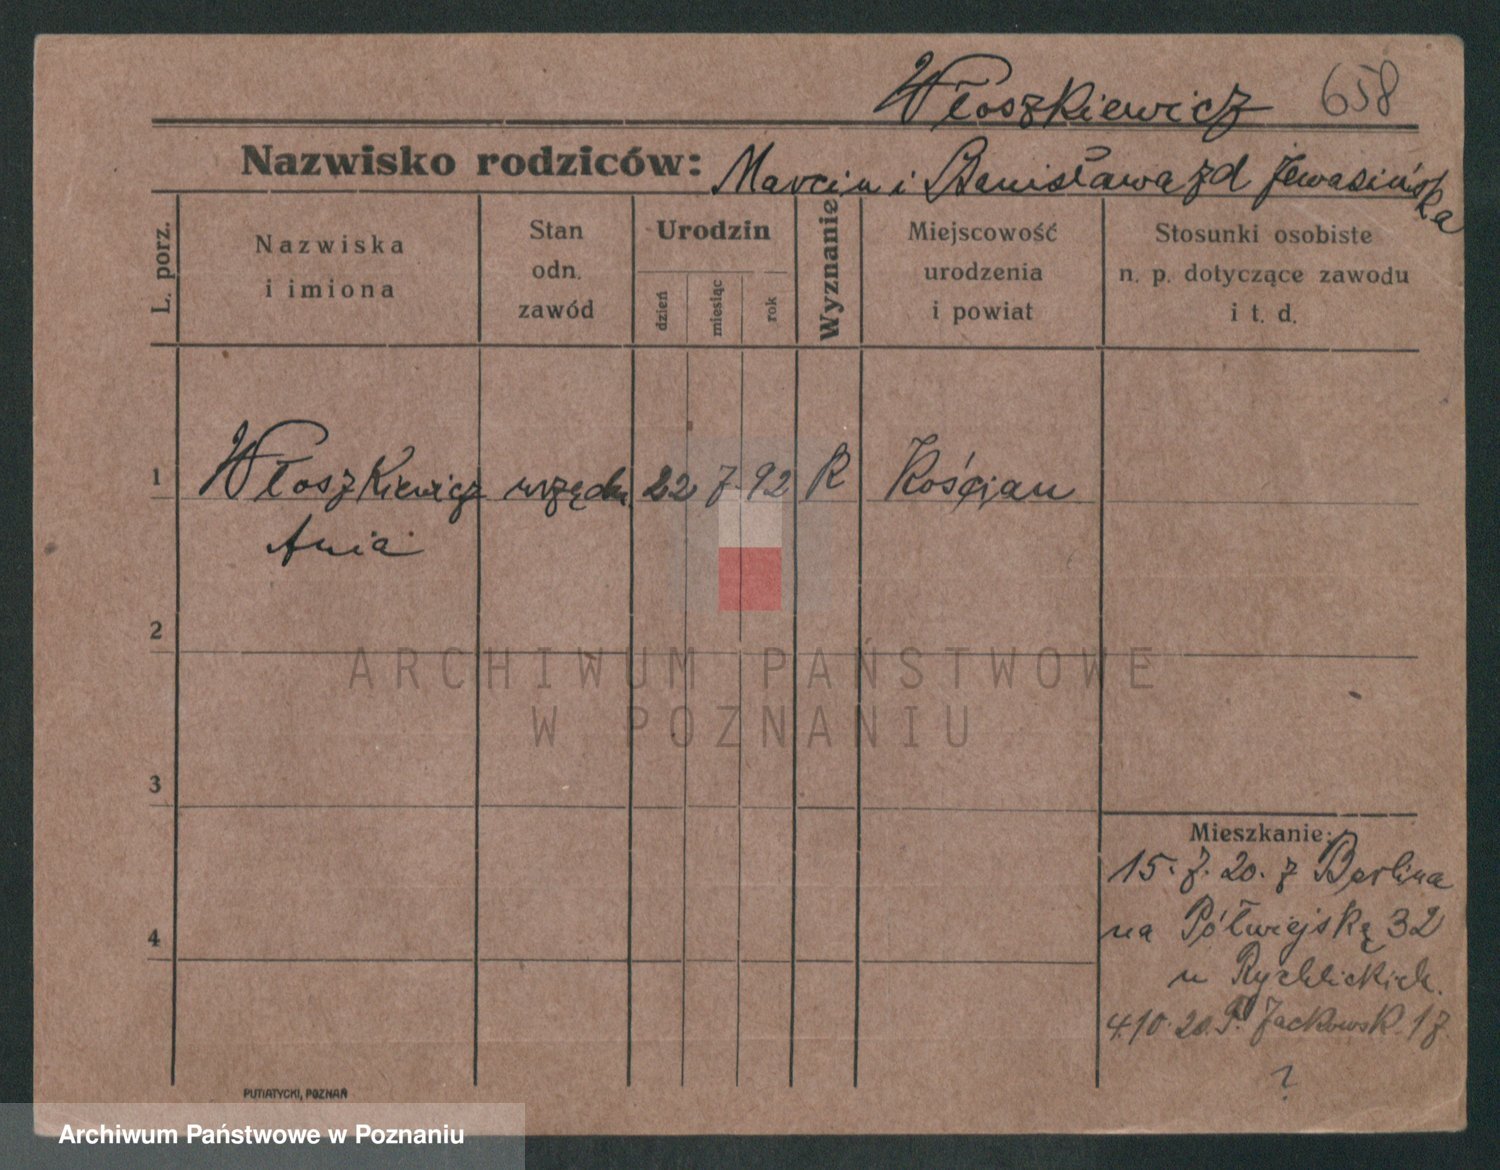 Włoszkiewicz 658
Nazwisko rodziców: Marcin i Stanisława zd
L. porz.
Nazwiska
i imiona
Stan
odn.
zawód
Urodzin
dzień
miesiąc
rok
Wyznanie
Miejscowość
urodzenia
i powiat
Stosunki osobiste
n. p. dotyczące zawodu
i t. d.
1 Włoszkiewicz urzędn. 22 7 92 R Kościan
Ania
2
3
4
Mieszkanie:
15. 7. 20. z Berlina
na Półwiejską 32
u Rychlickich.
4.10.20. P. Jackowsk. 17.
?
PUTIATYCKI, POZNAŃ
ARCHIWUM PAŃSTWOWE
W POZNANIU
Archiwum Państwowe w Poznaniu